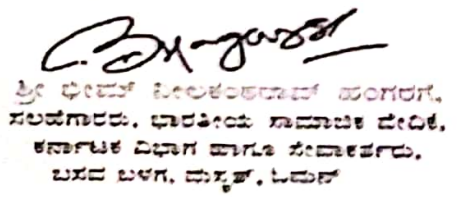 ಶ್ರೀ ಭೀಮ್ ನೀಲಕಂಠರಾವ್ ಹಂಗರಗಿ,
ಸಲಹೆಗಾರರು, ಭಾರತೀಯ ಸಾಮಾಜಿಕ ವೇದಿಕೆ,
ಕರ್ನಾಟಕ ವಿಭಾಗ ಹಾಗೂ ಸೇವಾಕರ್ತರು,
ಬಸವ ಬಳಗ, ಮಸ್ಕತ್, ಓಮನ್